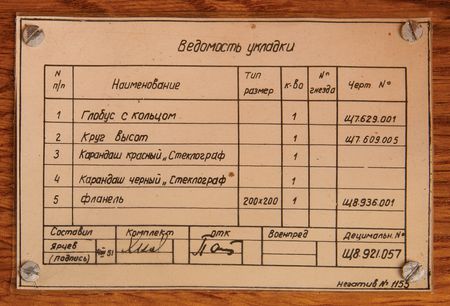 Ведомость укладки
N п/п Наименование Тип размер к-во Nº гнезда Черт Nº
1 Глобус с кольцом 1 Щ7.629.001
2 Круг высот 1 Щ7.609.005
3 Карандаш красный „Стеклограф 1
4 Карандаш черный „Стеклограф 1
5 фланель 200х200 1 Щ8.936.001
Составил Комплект отк Военпред Децимальн. Nº
Ярцев (подпись) Щ8.921.057
негатив Nº 1155